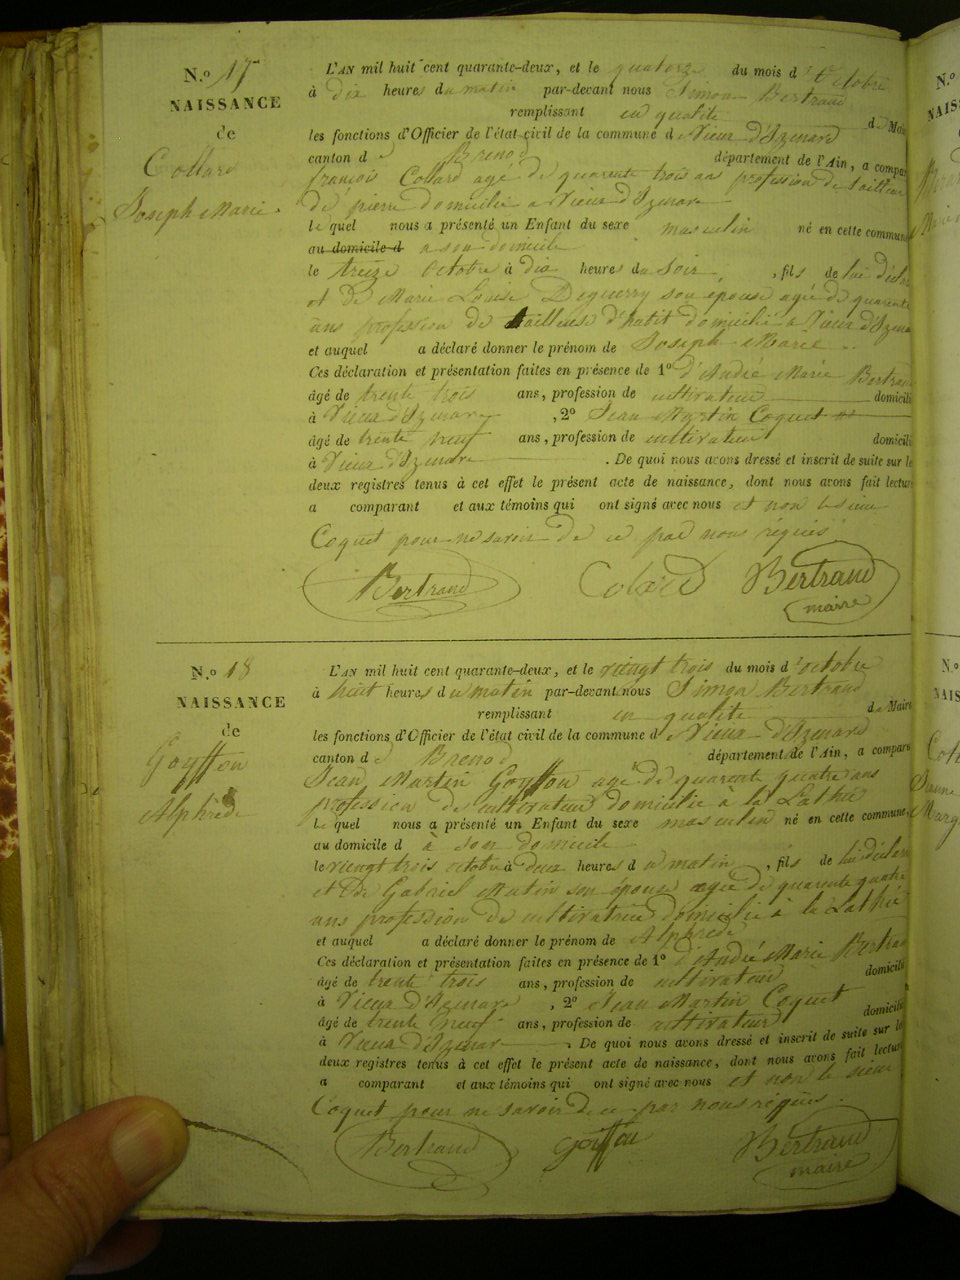 N.° 17
NAISSANCE
de
Collard
Joseph Marie.
L'AN mil huit cent quarante-deux, et le quatorze du mois d'Octobre
à dix heures du matin par-devant nous Simon Bertrand
remplissant en qualité de Maire
les fonctions d'Officier de l'état civil de la commune d Vieux d'Izenave
canton de Brenod département de l'Ain, a compar
françois Collard agé de quarente trois ans profession de tailleur
de pierre domicilié a Vieux d'Izenave
lequel nous a présenté un Enfant du sexe masculin né en cette commune
au domicile d a son domicile
le treize Octobre à dix heures du Soir, fils de lui décla
et de Marie Louise Deguerry son épouse agé de quarente
ans profession de tailleuse d'habit domicilié a Vieux d'Izena
et auquel a déclaré donner le prénom de Joseph Marie.
Ces déclaration et présentation faites en présence de 1° d'André Marie Bertrand
âgé de trente trois ans, profession de cultivateur domicilié
à Vieux d'Izenave, 2° Jean Martin Coquet
âgé de trente neuf ans, profession de cultivateur domicilié
à Vieux d'Izenave. De quoi nous avons dressé et inscrit de suite sur le
deux registres tenus à cet effet le présent acte de naissance, dont nous avons fait lecture
a comparant et aux témoins qui ont signé avec nous et non le sieur
Coquet pour ne savoir de ce par nous réquis.
Bertrand Colard Bertrand
maire
N.° 18
NAISSANCE
de
Goyffon
Alphrède
L'AN mil huit cent quarante-deux, et le vingt trois du mois d'octobre
à huit heures du matin par-devant nous Simon Bertrand
remplissant en qualité de Maire
les fonctions d'Officier de l'état civil de la commune d Vieux d'Izenave
canton de Brenod département de l'Ain, a compara
Jean Martin Goyffon agé de quarente quatre ans
profession de cultivateur domicilié à la Lathe
lequel nous a présenté un Enfant du sexe masculin né en cette commune,
au domicile d à son domicile
le vingt trois octobre à deux heures du matin, fils de lui déclara
et de Gabriel Mutin son épouse agée de quarente quatre
ans profession de cultivatrice domicilié à la Lathe
et auquel a déclaré donner le prénom de Alphrède
Ces déclaration et présentation faites en présence de 1° d'André Marie Bertrand
âgé de trente trois ans, profession de cultivateur domicilié
à Vieux d'Izenave, 2° Jean Martin Coquet
âgé de trente neuf ans, profession de cultivateur domicilié
à Vieux d'Izenave. De quoi nous avons dressé et inscrit de suite sur le
deux registres tenus à cet effet le présent acte de naissance, dont nous avons fait lecture
a comparant et aux témoins qui ont signé avec nous et non le sieur
Coquet pour ne savoir de ce par nous réquis.
Bertrand goiffon Bertrand
maire